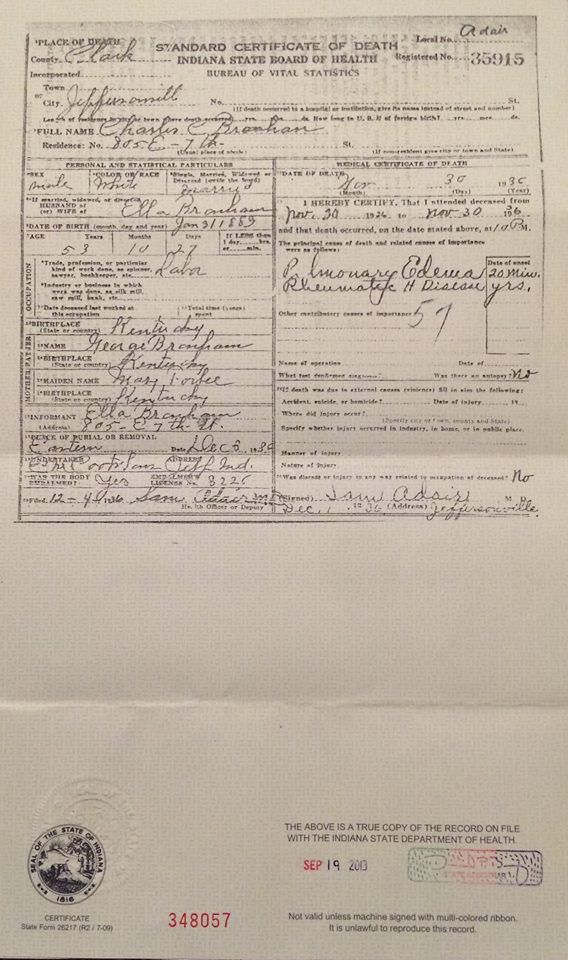 Adair
PLACE OF DEATH
STANDARD CERTIFICATE OF DEATH
Local No.
County Clark
INDIANA STATE BOARD OF HEALTH
Registered No. 35915
Incorporated
BUREAU OF VITAL STATISTICS
Town
or
City Jeffersonvill No. St.
(If death occurred in a hospital or institution, give its name instead of street and number)
Length of residence in city or town where death occurred yrs. mos. ds. How long in U. S. if of foreign birth? yrs. mos. ds.
FULL NAME Charles C Branham
Residence: No. 805 E - 7th - St.
(Usual place of abode) (If nonresident give city or town and State)
PERSONAL AND STATISTICAL PARTICULARS
SEX male
COLOR OR RACE White
Single, Married, Widowed or Divorced (write the word)
If married, widowed, or divorced
HUSBAND of
(or) WIFE of Ella Branham
DATE OF BIRTH (month, day and year) Jan 3 1883
AGE Years Months Days If LESS than
53 10 27 1 day hrs.
or min.
OCCUPATION
Trade, profession, or particular
kind of work done, as spinner,
sawyer, bookkeeper, etc. Labor
Industry or business in which
work was done, as silk mill,
saw mill, bank, etc.
Date deceased last worked at
this occupation
Total time (years)
spent
BIRTHPLACE
(State or country) Kentucky
NAME George Branham
BIRTHPLACE
(State or country) Kentucky
MOTHER
MAIDEN NAME Mary
BIRTHPLACE
(State or country) Kentucky
INFORMANT Ella Branham
(Address) 805 - E 7th St.
PLACE OF BURIAL OR REMOVAL
Eastern Date Dec 3 1936
UNDERTAKER ADDRESS
Jeff Ind.
WAS THE BODY
EMBALMED? Yes
EMBALMER'S
LICENSE No. 3225
Filed 12-4 1936 Sam Adair M D
Health Officer or Deputy
MEDICAL CERTIFICATE OF DEATH
DATE OF DEATH Nov 30 1936
(Month) (Day) (Year)
I HEREBY CERTIFY, That I attended deceased from
Nov. 30 1936 to Nov 30 1936
and that death occurred, on the date stated above, at 10 P M.
The principal cause of death and related causes of importance
were as follows:
Date of onset
Pulmonary Edema 20 min.
Rheumatic H Disease yrs.
Other contributory causes of importance
57
Name of operation Date of
What test confirmed diagnosis? Was there an autopsy? No
If death was due to external causes (violence) fill in also the following:
Accident, suicide, or homicide? Date of injury 19
Where did injury occur?
(Specify city or town, county and State)
Specify whether injury occurred in industry, in home, or in public place.
Manner of injury
Nature of injury
Was disease or injury in any way related to occupation of deceased? No
(Signed) Sam Adair M. D.
Dec. 1 1936 (Address) Jeffersonville
SEAL OF THE STATE OF INDIANA
1816
THE ABOVE IS A TRUE COPY OF THE RECORD ON FILE
WITH THE INDIANA STATE DEPARTMENT OF HEALTH.
SEP 19 2013
CERTIFICATE
State Form 26217 (R2 / 7-09)
348057
Not valid unless machine signed with multi-colored ribbon.
It is unlawful to reproduce this record.